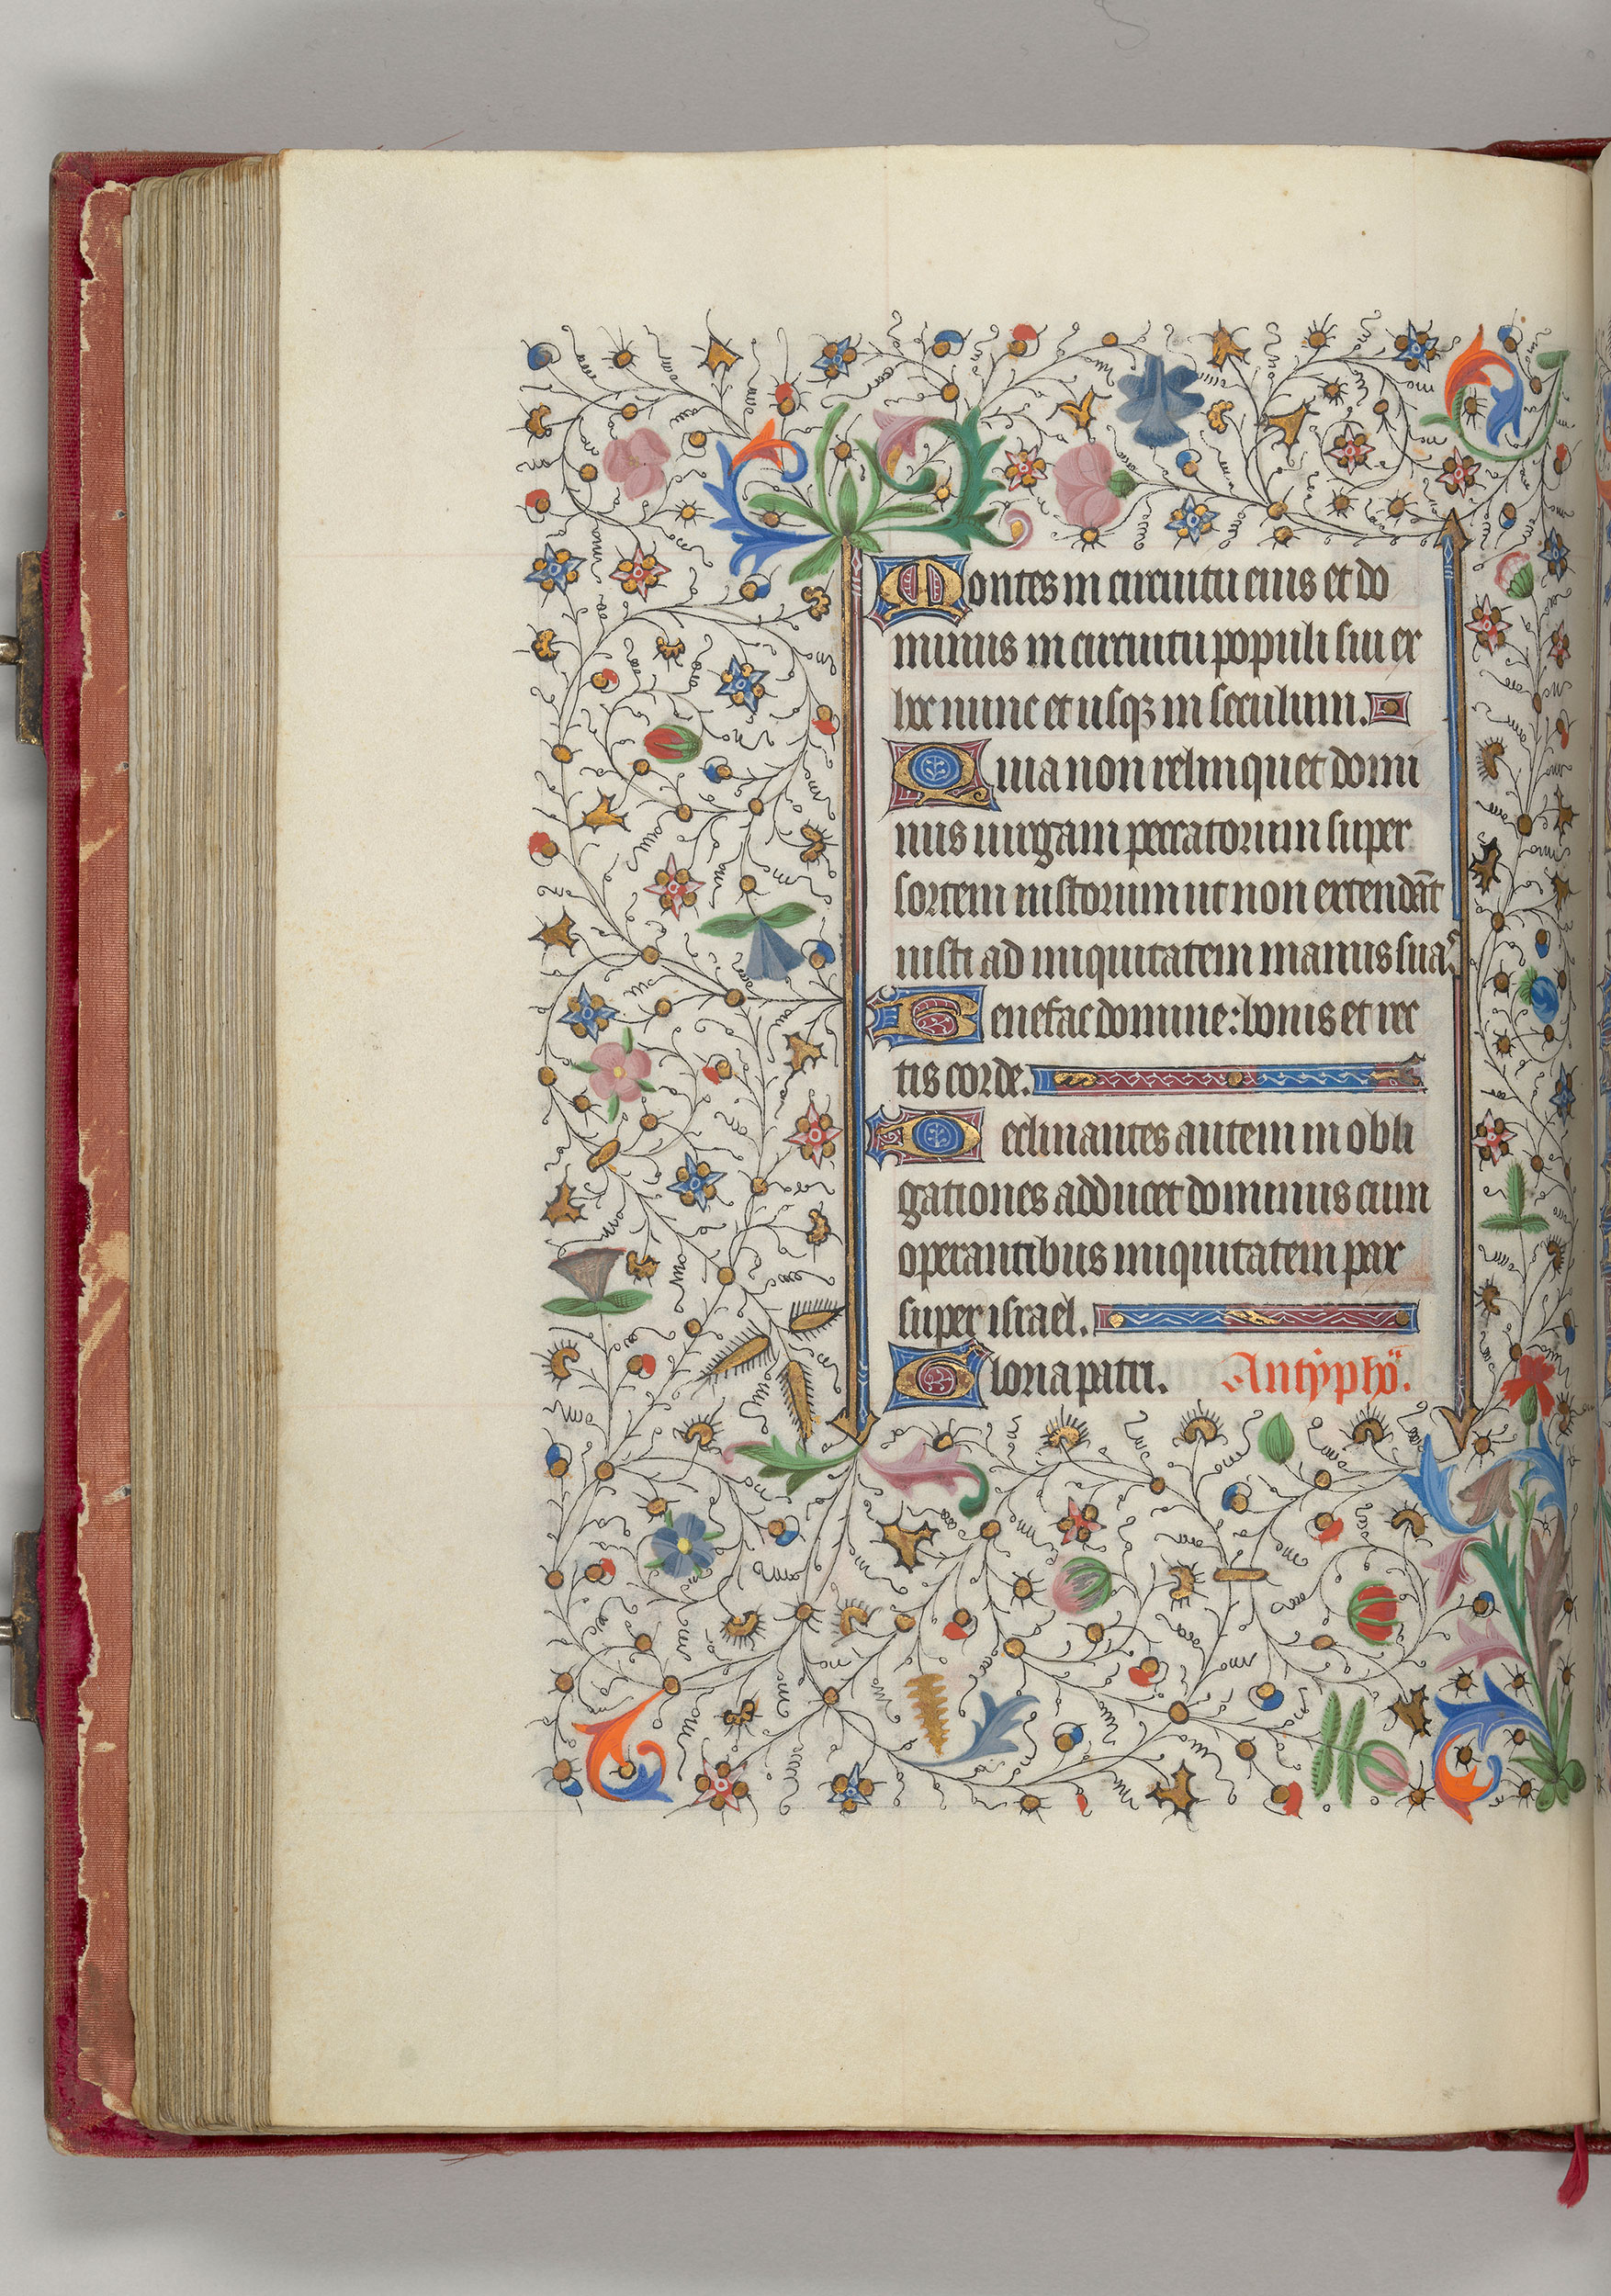 Montes in circuitu eius et do
minus in circuitu populi sui ex
hoc nunc et usqꝫ in seculum.
Quia non relinquet domi
nus uirgam peccatorum super
sortem iustorum ut non extendāt
iusti ad iniquitatem manus suas
Benefac domine: bonis et rec
tis corde.
Declinantes autem in obli
gationes adducet dominus cum
operantibus iniquitatem pax
super israel.
Gloria patri. Antypho.